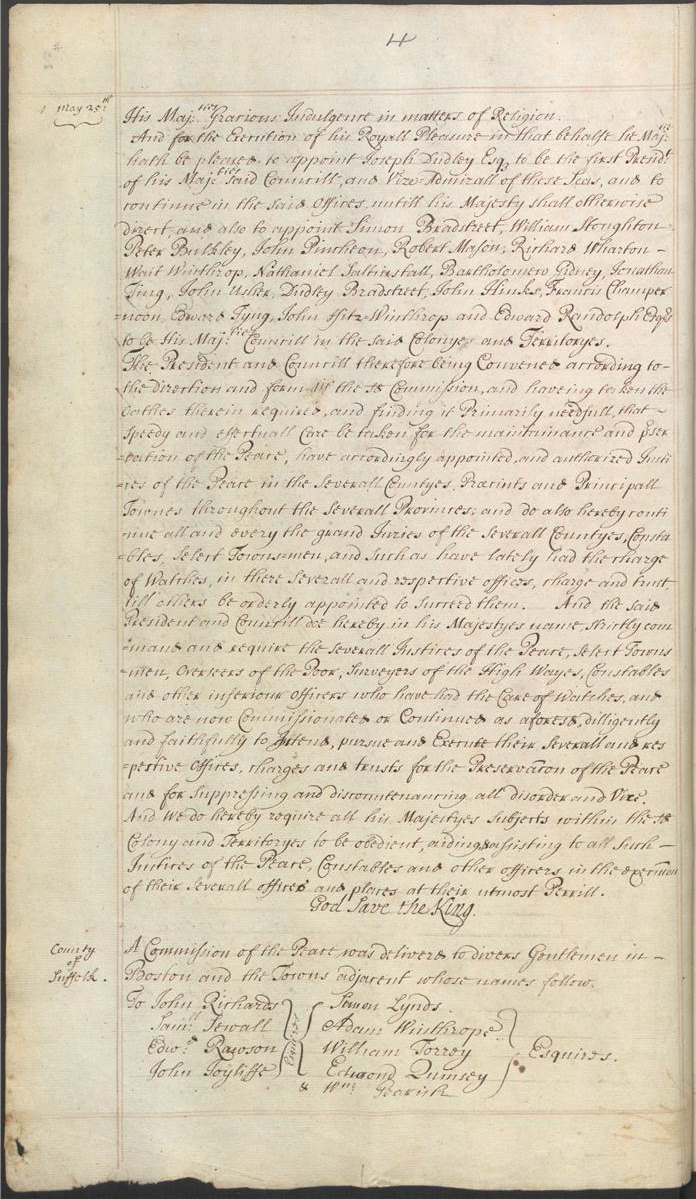 4
May 25th
His Maj:ties Gracious Indulgence in matters of Religion.
And for the Execution of his Royall Pleasure in that behalfe he Maj:tie
hath be pleased to appoint Joseph Dudley Esq to be the first Presidt
of his Maj:ties said Councill, and Vice-Admirall of these Seas, and to
continue in the said offices, untill his Majesty shall otherwise
direct, and also to appoint Simon Bradstreet, William Stoughton
Peter Bulkley, John Pincheon, Robert Mason, Richard Wharton -
Wait Winthrop, Nathaniel Saltinstall, Bartholomew Gidney, Jonathan
Ting, John Usher, Dudley Bradstreet, John Hinks, Francis Champer
=noon Edward Tyng, John Fitz-Winthrop and Edward Randolph Esqrs
to be His Maj:ties Councill in the said Colonyes and Territoryes.
The President and Councill therefore being Convened according to-
the direction and form of the sd Commission, and haveing taken the
Oathes therein required, and finding it Primarily needfull, that -
speedy and effectuall Care be taken for the maintainance and pser
=vation of the Peace, have accordingly appointed and authorized Justi
=ces of the Peace in the severall Countyes, Precints and Principall
Townes throughout the severall Provinces; and do also hereby conti
=nue all and every the grand Juries of the severall Countyes, Consta
=bles, Select Towns-men, and such as have lately had the charge
of Watches, in there severall and respective offices, charge and trust
till others be orderly appointed to succeed them. And the said
President and Councill doe hereby in his Majestyes name, strictly com
=mand and require the severall Justices of the Peace, Select Towns
=men, Overseers of the Poor, Surveyers of the High Wayes, Constables
and other inferiour officers who have had the Care of Watches, and
who are now Commissionated or Continued as aforesd, dilligently
and faithfully to Intend, pursue and Execute their severall and res
=pective Offices, charges and trusts for the Preservacon of the Peace
and for Suppressing and discountenancing all disorder and Vice.
And We do hereby require all his Majestyes Subjects within the sd
Colony and Territoryes to be obedient, aiding & assisting to all such -
Justices of the Peace, Constables and other officers, in the execution
of their severall offices and places at their utmost Perrill.
God Save the King.
County
of
Suffolk.
A Commission of the Peace was delivered to divers Gentlemen in -
Boston and the Towns adjacent whose names follow.
To John Richards Simon Lynds
Samll Sewall Adam Winthrope
Edwd Rawson William Torrey Esquires.
John Joyliffe Edmond Qumsey
Esquires & Wm